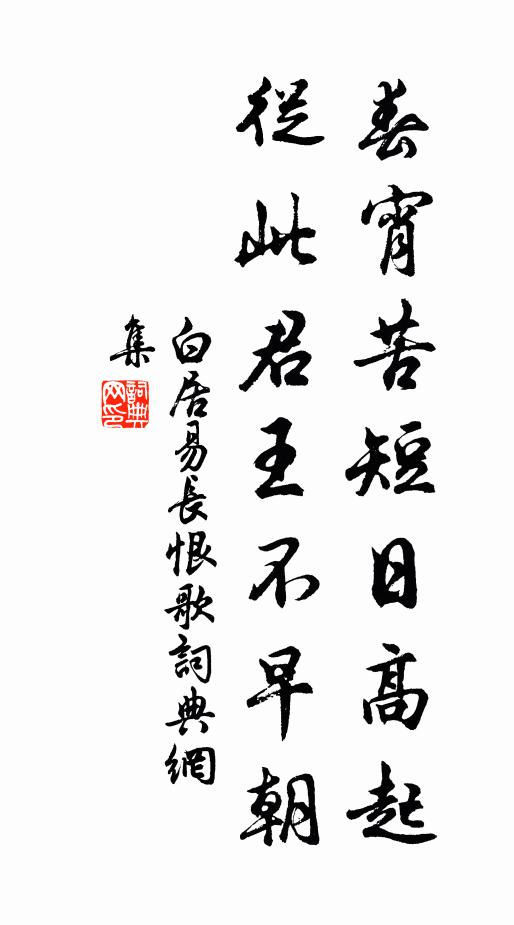 春宵苦短日高起
從此君王不早朝
白居易長恨歌詞典網
集
詞典
网印